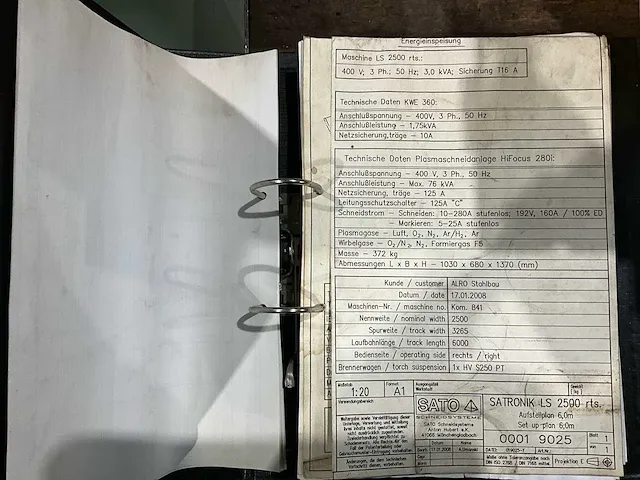 Energieinspeisung
Maschine LS 2500 rts.:
400 V; 3 Ph.; 50 Hz; 3,0 kVA; Sicherung T16 A
Technische Daten KWE 360:
Anschlußspannung – 400V, 3 Ph., 50 Hz
Anschlußleistung – 1,75kVA
Netzsicherung,träge – 10A
Technische Daten Plasmaschneidanlage HiFocus 280i:
Anschlußspannung – 400 V, 3 Ph., 50 Hz
Anschlußleistung – Max. 76 kVA
Netzsicherung, träge – 125 A
Leitungsschutzschalter – 125A "C"
Schneidstrom – Schneiden: 10-280A stufenlos; 192V, 160A / 100% ED
– Markieren: 5-25A stufenlos
Plasmagase – Luft, O₂, N₂, Ar/H₂, Ar
Wirbelgase – O₂/N₂, N₂, Formiergas F5
Masse – 372 kg
Abmessungen L x B x H – 1030 x 680 x 1370 (mm)
Kunde / customer ALRO Stahlbau
Datum / date 17.01.2008
Maschinen-Nr./ machine no. Kom. 841
Nennweite / nominal width 2500
Spurweite / track width 3265
Laufbahnlänge / track length 6000
Bedienseite / operating side rechts / right
Brennerwagen / torch suspension 1x HV S250 PT
Maßstab 1:20
Format A1
SATO
SCHNEIDSYSTEME
SATO Schneidsysteme
Anton Hubert e.K.
41065 Mönchengladbach
SATRONIK LS 2500 rts.
Aufstellplan 6,0m
Set-up-plan 6,0m
0001 9025
Blatt 1
von 1
Datum Name
17.01.2008
Projektion E